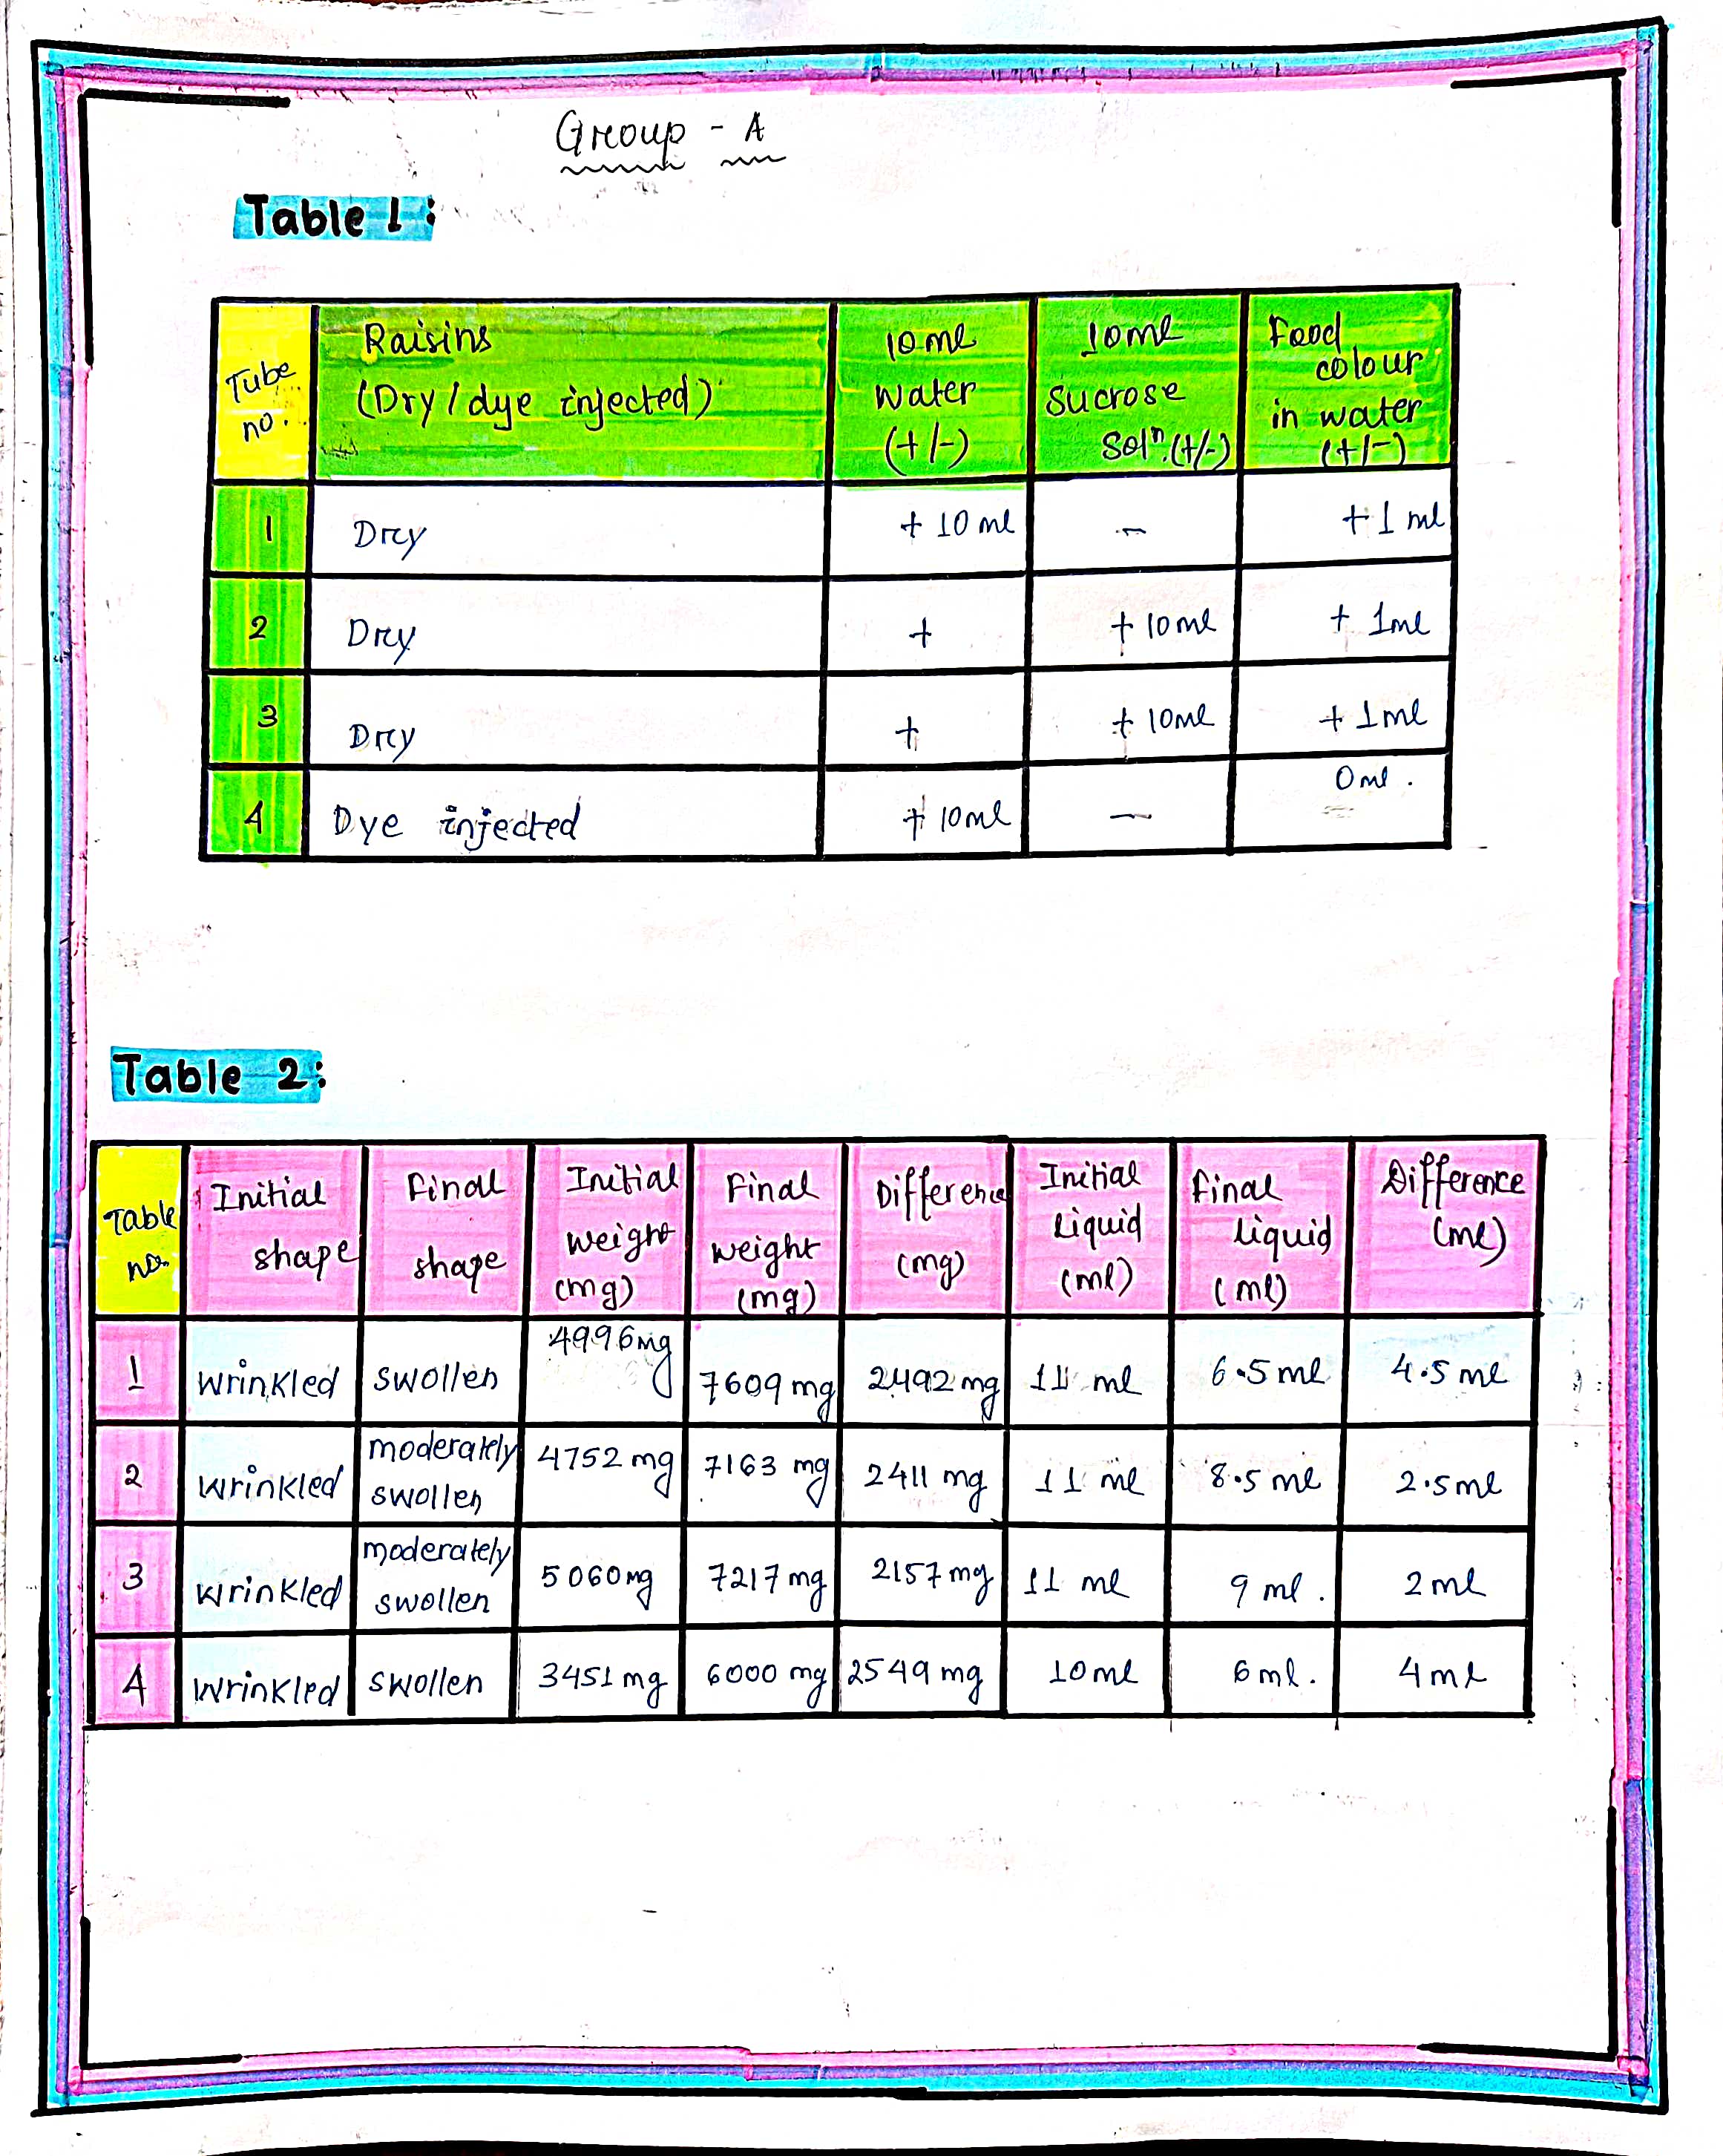 Group - A
Table 1:
Tube no.
Raisins (Dry / dye injected)
10 ml Water (+/-)
10 ml Sucrose Solⁿ. (+/-)
Food colour in water (+/-)
1 Dry + 10 ml - + 1 ml
2 Dry + + 10 ml + 1 ml
3 Dry + + 10 ml + 1 ml
4 Dye injected + 10 ml - 0 ml.
Table 2:
Table no.
Initial shape
Final shape
Initial weight (mg)
Final weight (mg)
Difference (mg)
Initial Liquid (ml)
Final liquid (ml)
Difference (ml)
1 wrinkled swollen 4996 mg 7609 mg 2492 mg 11 ml 6.5 ml 4.5 ml
2 wrinkled moderately swollen 4752 mg 7163 mg 2411 mg 11 ml 8.5 ml 2.5 ml
3 wrinkled moderately swollen 5060 mg 7217 mg 2157 mg 11 ml 9 ml. 2 ml
4 wrinkled swollen 3451 mg 6000 mg 2549 mg 10 ml 6 ml. 4 ml